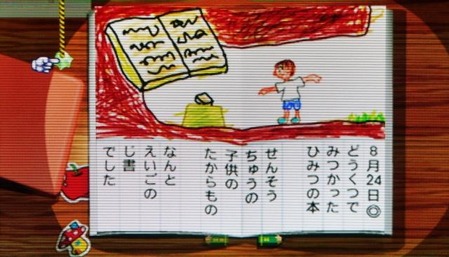 8月24日◎
どうくつで
みつかった
ひみつの本
せんそう
ちゅうの
子供の
たからもの
なんと
えいごの
じ書
でした